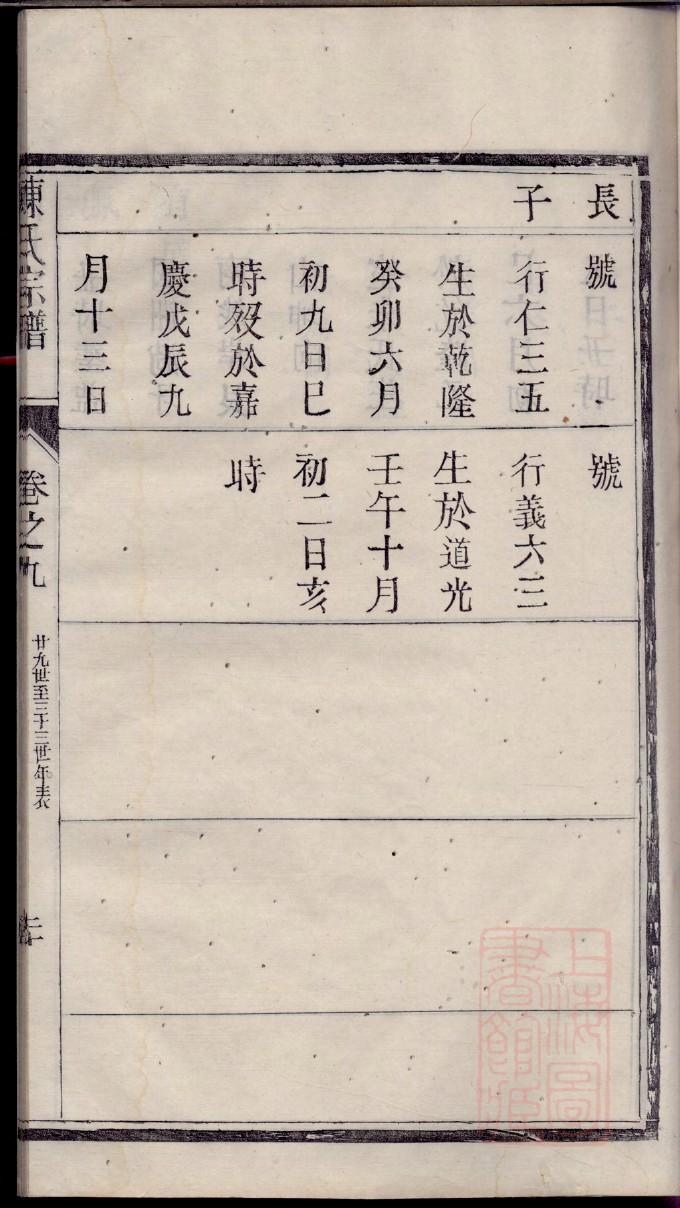 長
子
號
行仁三五
生於乾隆
癸卯六月
初九日巳
時歿於嘉
慶戊辰九
月十三日
號
行義六三
生於道光
壬午十月
初二日亥
時
陳氏宗譜
卷之九
廿九世至三十三世年表
上海圖
書館藏